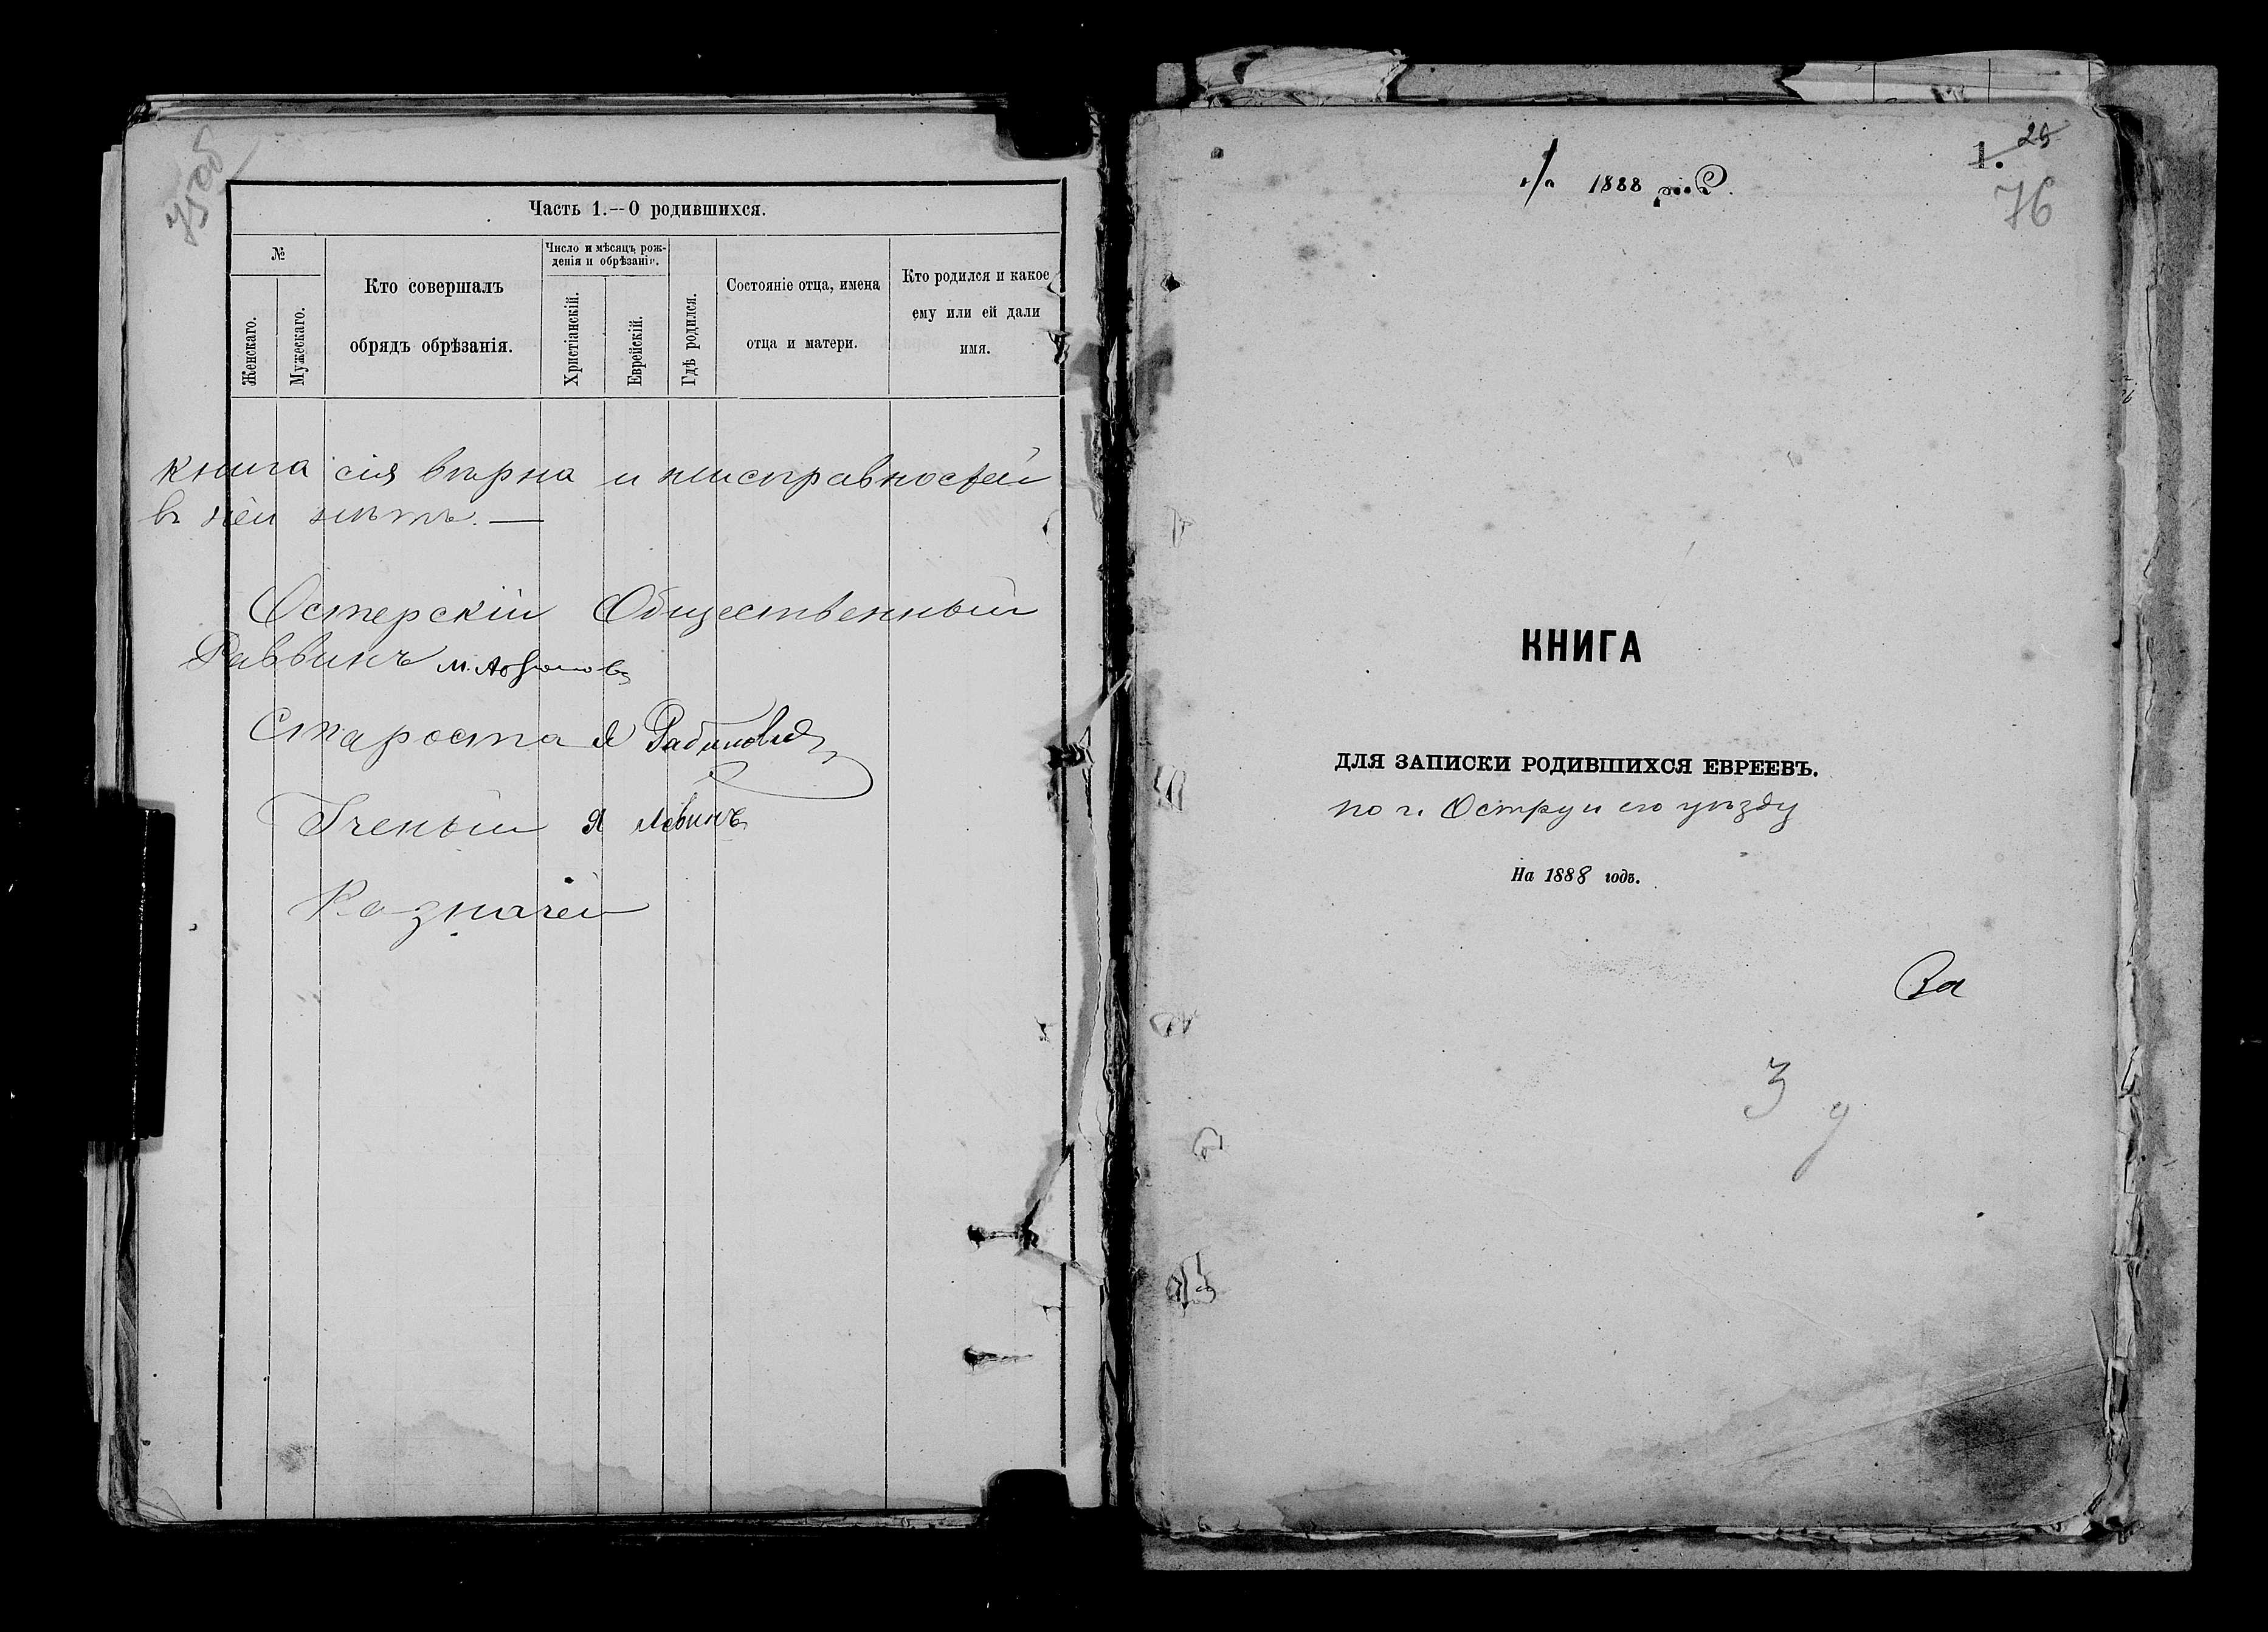 75об
Часть 1.—О родившихся.
№
Женскаго.
Мужескаго.
Кто совершалъ
обрядъ обрѣзанія.
Число и мѣсяцъ рож-
денія и обрѣзанія.
Христіанскій.
Еврейскій.
Гдѣ родился.
Состояніе отца, имена
отца и матери.
Кто родился и какое
ему или ей дали
имя.
книга сія вѣрна и неисправностей
въ ней нѣтъ. —
Остерскій Общественный
Раввинъ М.
Староста Я Рабиновичъ
Ученый Я Левинъ
Казначей
1888
1. 25
76
КНИГА
ДЛЯ ЗАПИСКИ РОДИВШИХСЯ ЕВРЕЕВЪ.
по г. Остру и его уѣзду
На 1888 годъ.
За
3 у